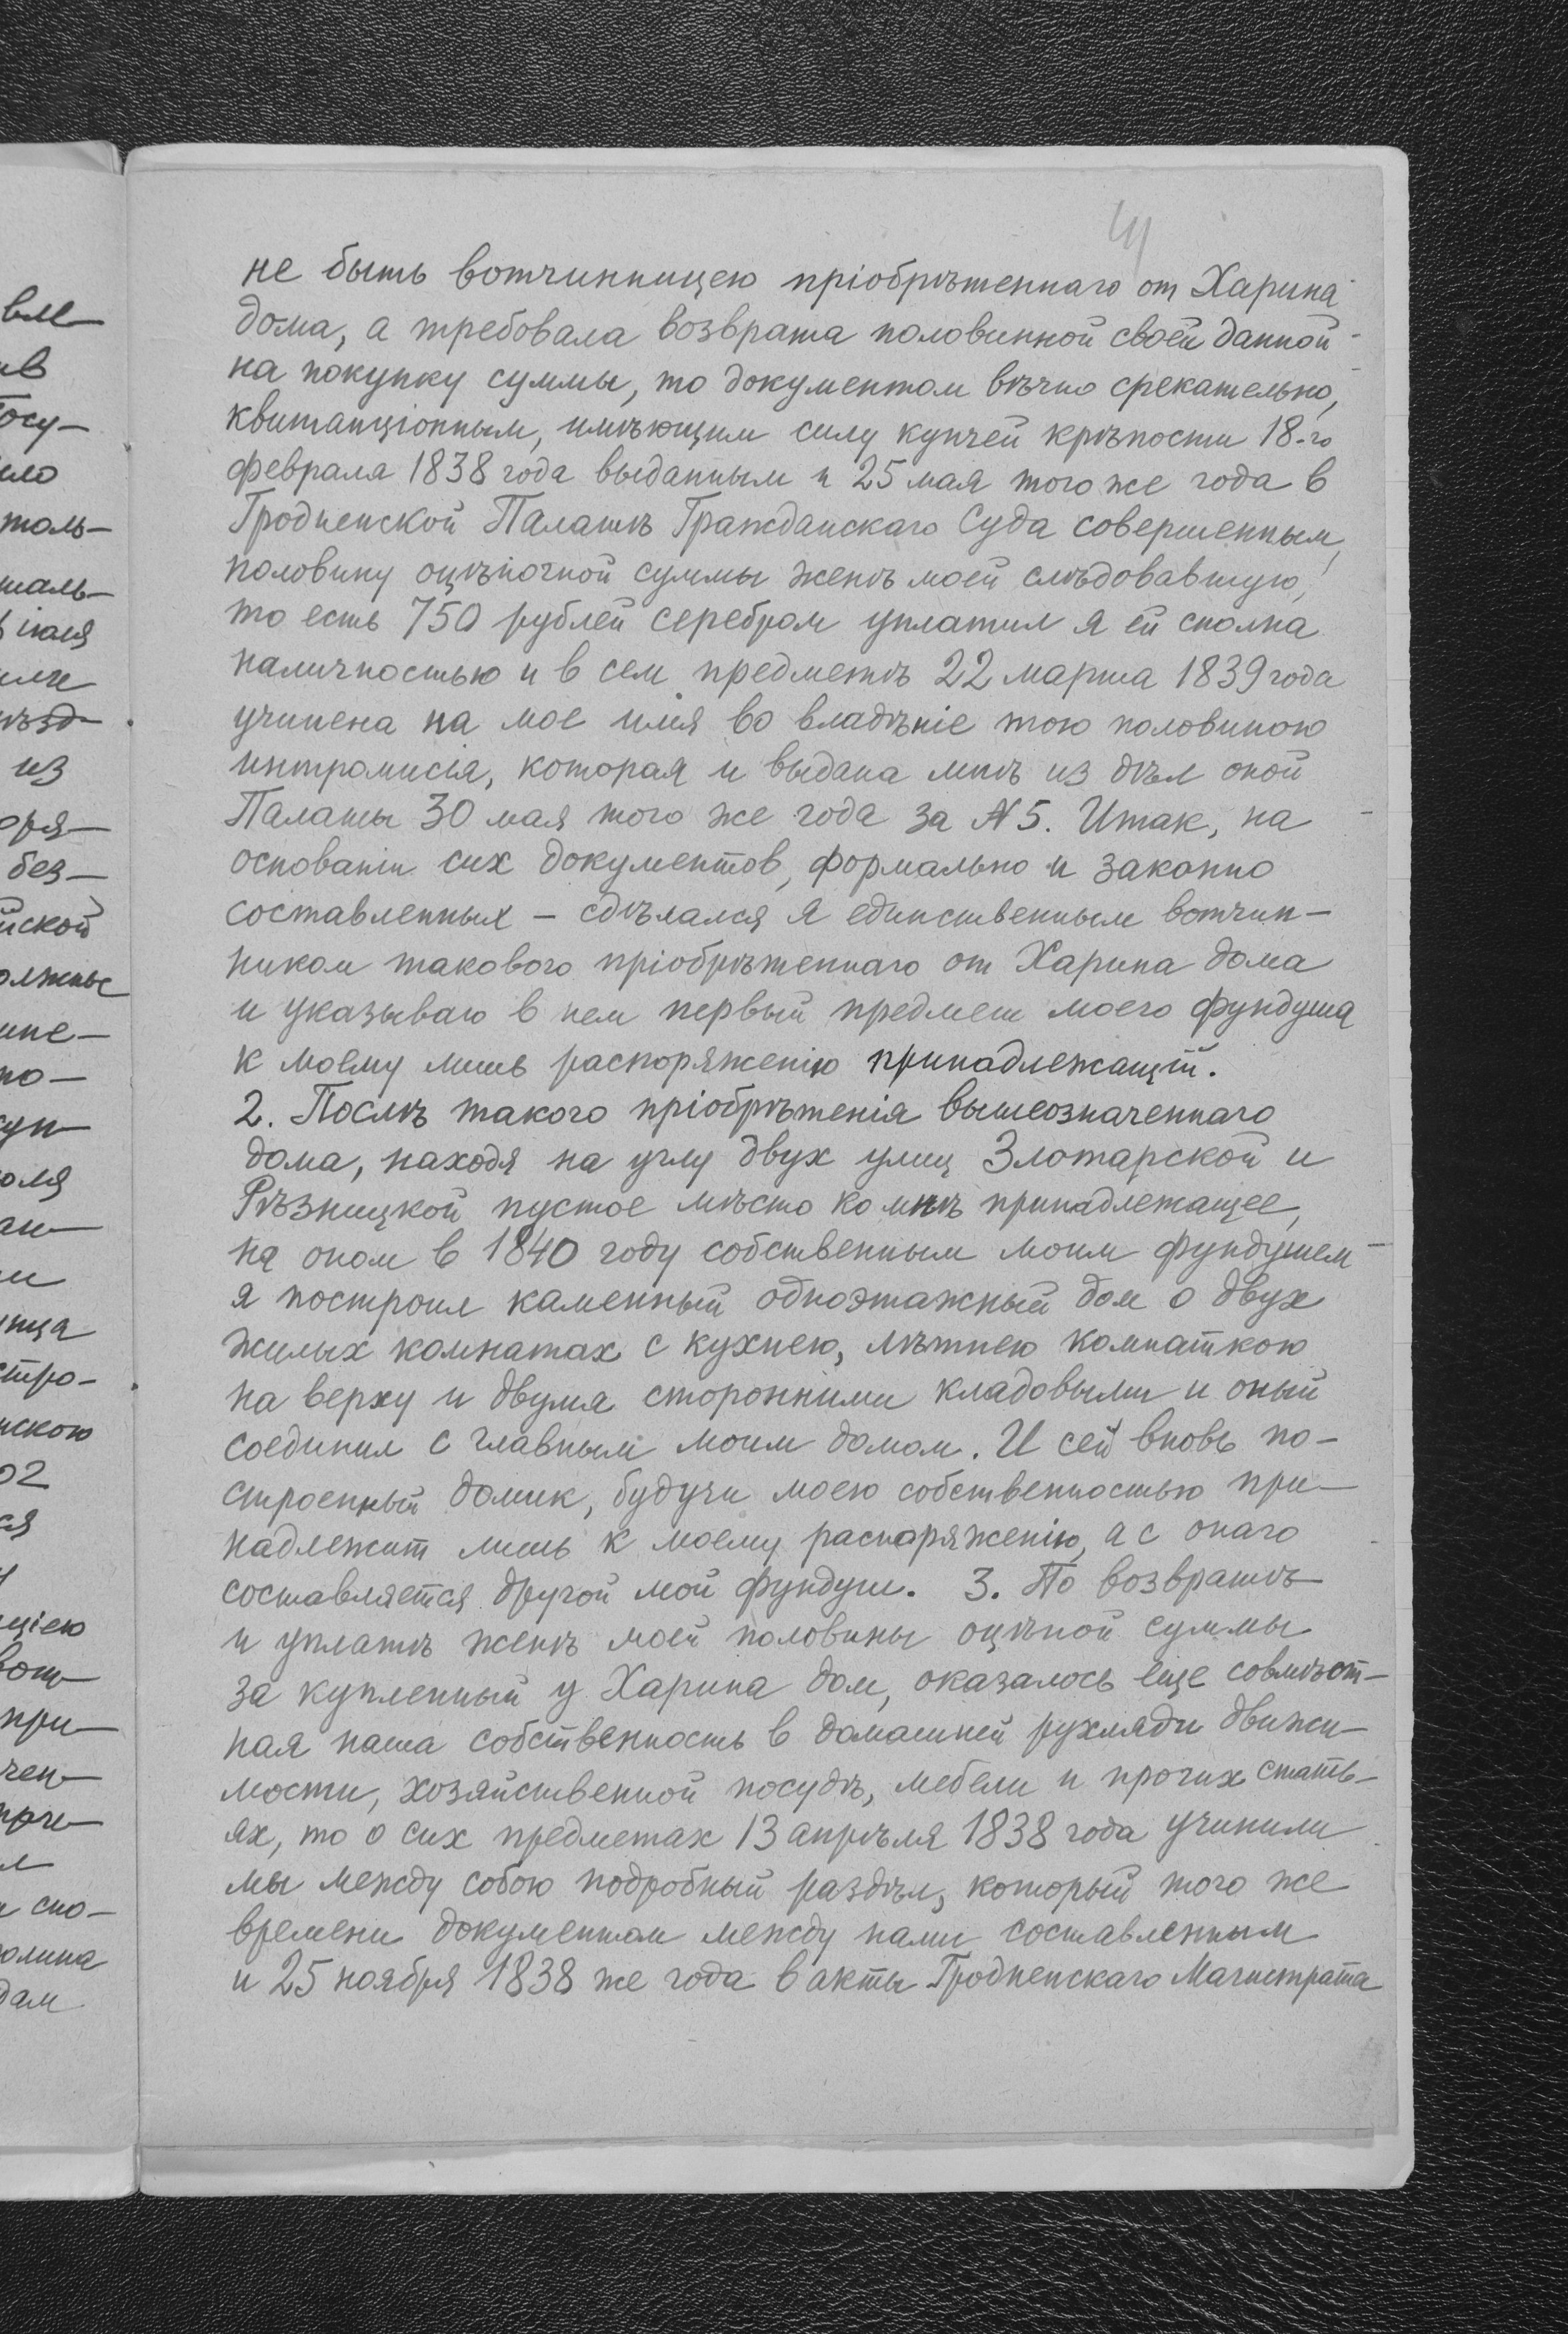 41
не быть вотчинницею пріобрѣтеннаго от Харина
дома, а требовала возврата половинной своей данной
на покупку суммы, то документом вѣчно срекательно,
квитанціонным, имѣющим силу купчей крѣпости 18-го
февраля 1838 года выданным и 25 мая того же года в
Гродненской Палатѣ Гражданскаго Суда совершенным,
половину оцѣночной суммы женѣ моей слѣдовавшую,
то есть 750 рублей серебром уплатил я ей сполна
наличностью и в сем предметѣ 22 марта 1839 года
учинена на мое имя во владѣніе тою половиною
интромисія, которая и выдана мнѣ из дѣл оной
Палаты 30 мая того же года за № 5. Итак, на
основаніи сих документов, формально и законно
составленных – сдѣлался я единственным вотчин–
ником такового пріобрѣтеннаго от Харина дома
и указываю в нем первый предмет моего фундуша
к моему лишь распоряженію принадлежащій.
2. Послѣ такого пріобрѣтенія вышеозначеннаго
дома, находя на углу двух улиц Злотарской и
Рѣзницкой пустое мѣсто ко мнѣ принадлежащее,
на оном в 1840 году собственным моим фундушем
я построил каменный одноэтажный дом о двух
жилых комнатах с кухнею, лѣтнею комнаткою
на верху и двумя сторонними кладовыми и оный
соединил с главным моим домом. И сей вновь по–
строенный домик, будучи моею собственностью при–
надлежит лишь к моему распоряженію, а с онаго
составляется другой мой фундуш. 3. По возвратѣ
и уплатѣ женѣ моей половины оцѣной суммы
за купленный у Харина дом, оказалось еще совмѣст–
ная наша собственность в домашней рухляди движи–
мости, хозяйственной посудѣ, мебели и прочих стать–
ях, то о сих предметах 13 апрѣля 1838 года учинили
мы между собою подробный раздѣл, который того же
времени документом между нами составленным
и 25 ноября 1838 же года в акты Гродненскаго Магистрата